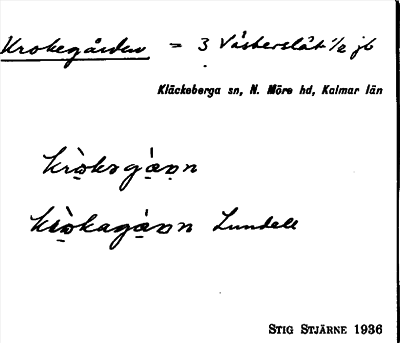 Krokegården = 3 Västerslät 1/2 jb
Kläckeberga sn, N. Möre hd, Kalmar län
Lundell
STIG STJÄRNE 1936